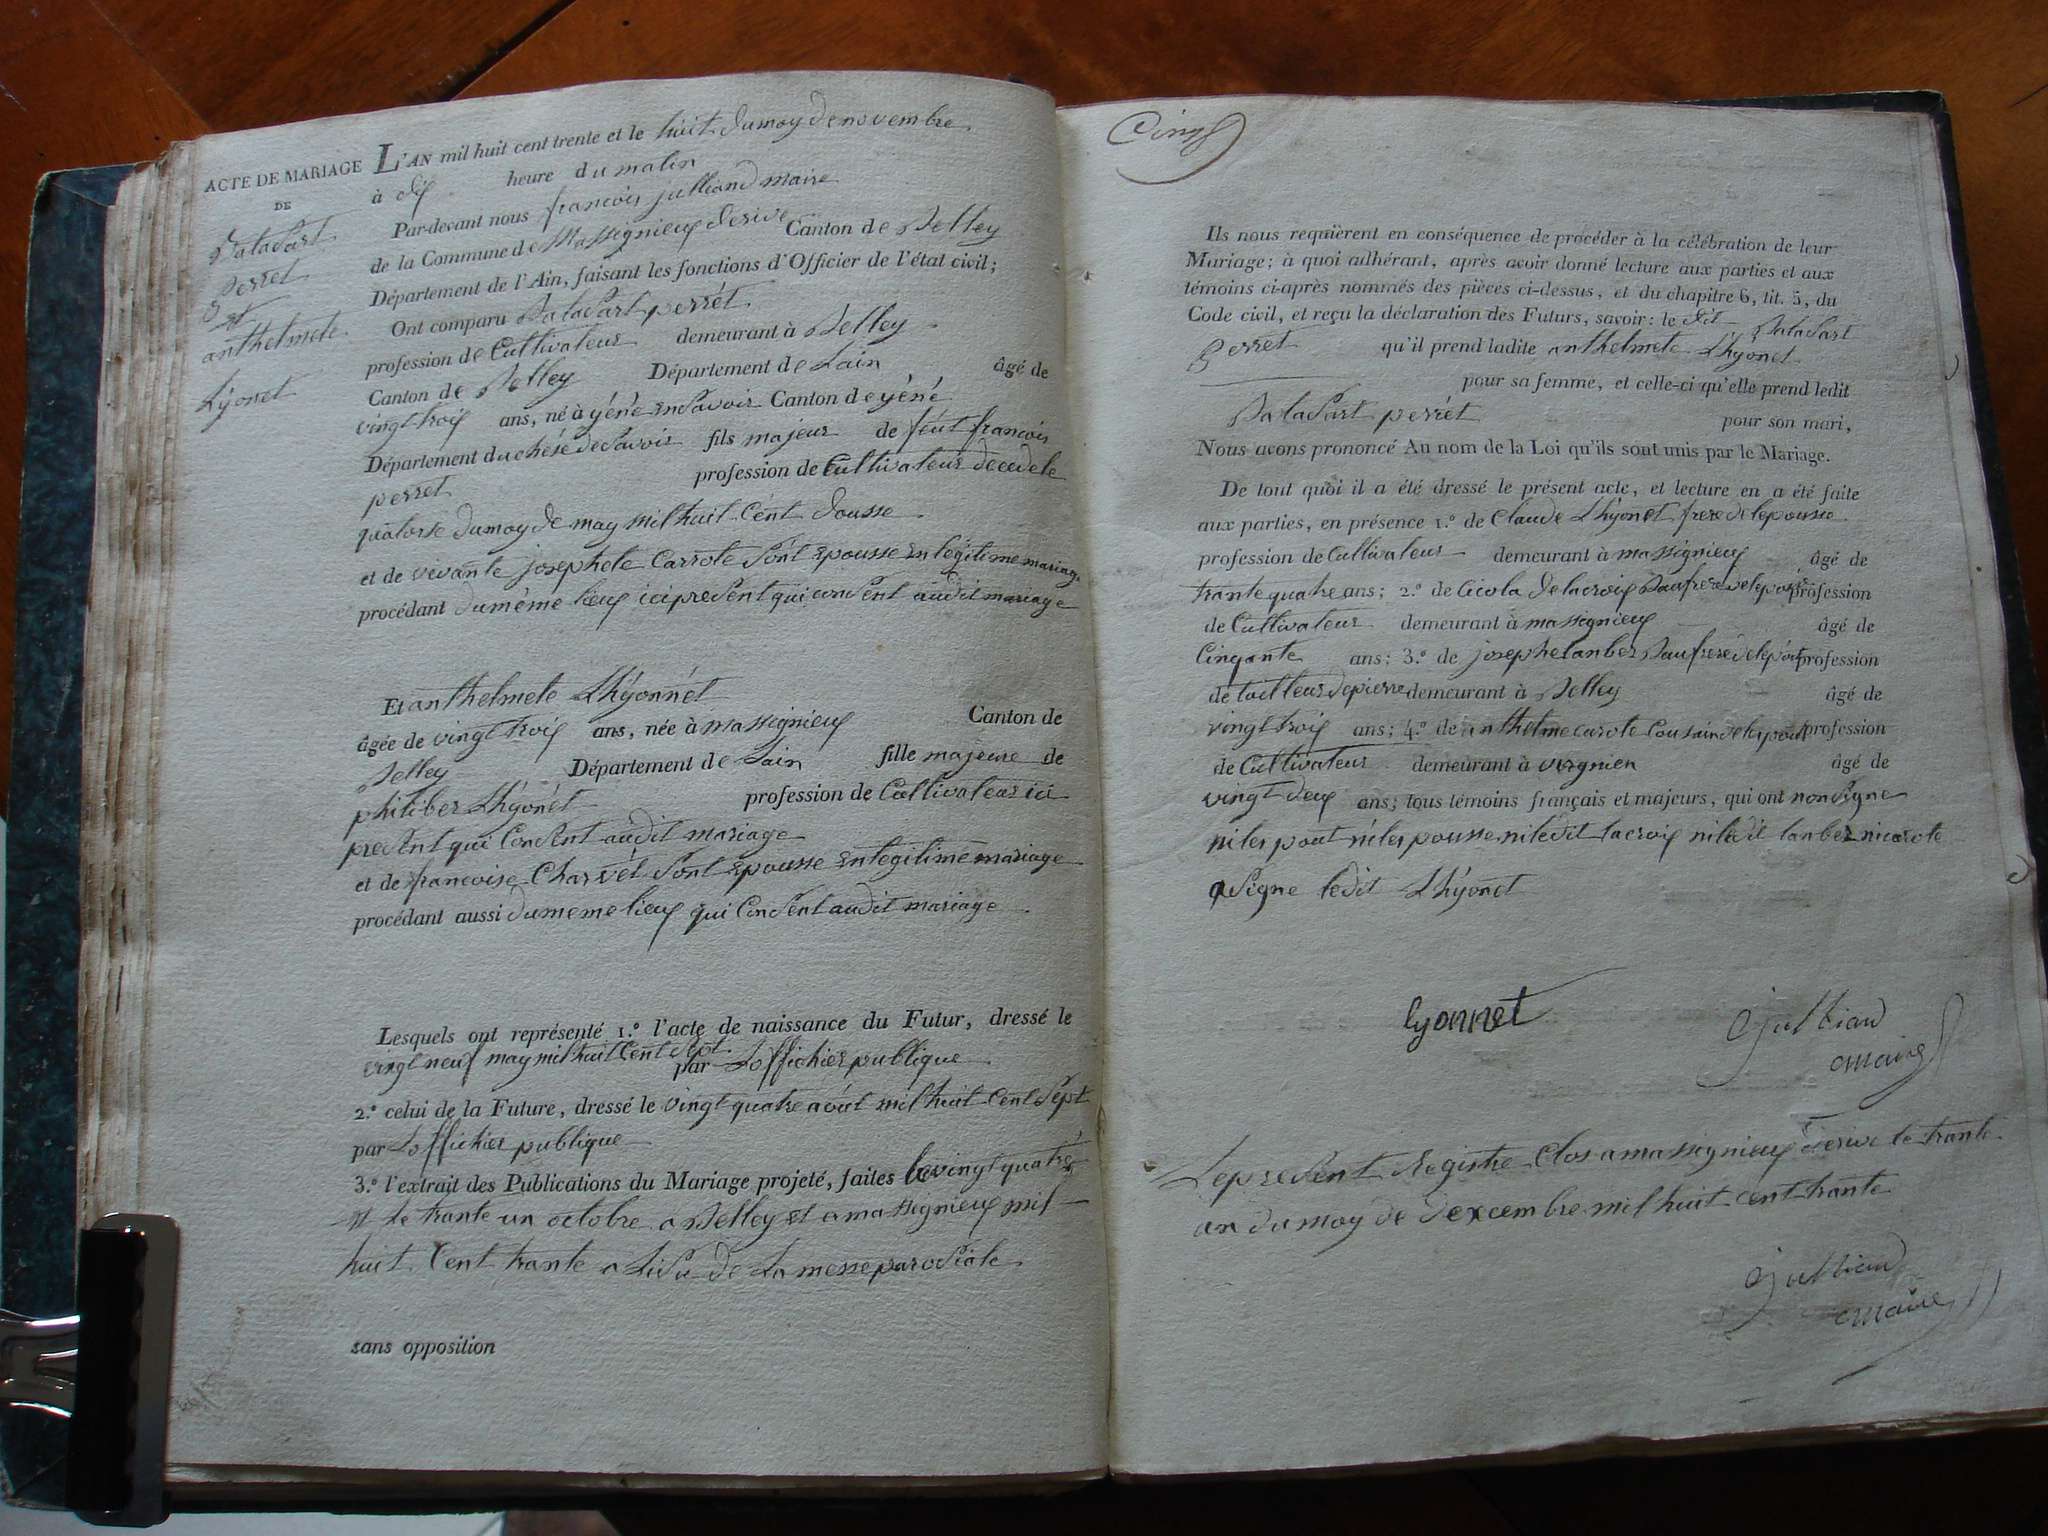 ACTE DE MARIAGE
DE
Balasart
perret
Et
anthelmete
Lyonet
L'AN mil huit cent trente et le huit du moy de novembre
à dix heure du matin
Par-devant nous francois julliand maire
de la Commune de Massignieux derive Canton de Belley
Département de l'Ain, faisant les fonctions d'Officier de l'état civil;
Ont comparu Balasart perrét
profession de Cultivateur demeurant à Belley
Canton de Belley Département de Lain âgé de
vingt trois ans, né à yéné en Savoir Canton de yéné
Département duchésé de Savoir fils majeur de féut francois
perret profession de Cultivateur décédé le
quatorse du moy de may mil huit cént dousse
et de vivante josephete Carrote sont Epousse En légitime mariage
procédant du même lieux ici présent qui consent audit mariage
Et anthelmete Lhÿonnét
âgée de vingt trois ans, née à massignieux Canton de
Belley Département de Lain fille majeure de
philiber Lhÿonét profession de Cultivateur ici
present qui Consent audit mariage
et de francoise Charvét sont Epousse En legitime mariage
procédant aussi du meme lieux qui Consent audit mariage
Lesquels ont représenté 1.º l'acte de naissance du Futur, dressé le
vingt neuf may mil huit cent sept par Loffichier publique
2.º celui de la Future, dressé le vingt quatre aóut mil huit cent Sept
par Loffichier publique
3.º l'extrait des Publications du Mariage projeté, faites le vingt quatre
et le trante un octobre a Belley et a massignieux mil
huit Cent trante a Lisu de La messe parosiale
sans opposition
Cinq
Ils nous requièrent en conséquence de procéder à la célébration de leur
Mariage; à quoi adhérant, après avoir donné lecture aux parties et aux
témoins ci-après nommés des pièces ci-dessus, et du chapitre 6, tit. 5, du
Code civil, et reçu la déclaration des Futurs, savoir: le dit Balasart
Perret qu'il prend ladite anthelmete Lhÿonet
pour sa femme, et celle-ci qu'elle prend ledit
Balasart perrét pour son mari,
Nous avons prononcé Au nom de la Loi qu'ils sont unis par le Mariage.
De tout quoi il a été dressé le présent acte, et lecture en a été faite
aux parties, en présence 1.º de Claude Lhÿonet frere de lepousse
profession de Cultivateur demeurant à massignieux âgé de
trante quatre ans; 2.º de Cicola Delacroix Baufrere de lepout profession
de Cultivateur demeurant à massignieux âgé de
Cinqante ans; 3.º de josephe lanber Baufrere de lepout profession
de tailleur de pierre demeurant à Belley âgé de
vingt trois ans; 4.º de anthelme carote Cousain de lepout profession
de Cultivateur demeurant à virgnien âgé de
vingt deux ans; tous témoins français et majeurs, qui ont non signe
ni les pout ni les pousse ni ledit lacroix ni ledit lanber ni carote
a Signe ledit Lhÿonet
lyonnet
Julliand
maire
Le present Registre Clos a massignieux derive le trante
un du moy de dexcembre mil huit cent trante
Julliand
maire